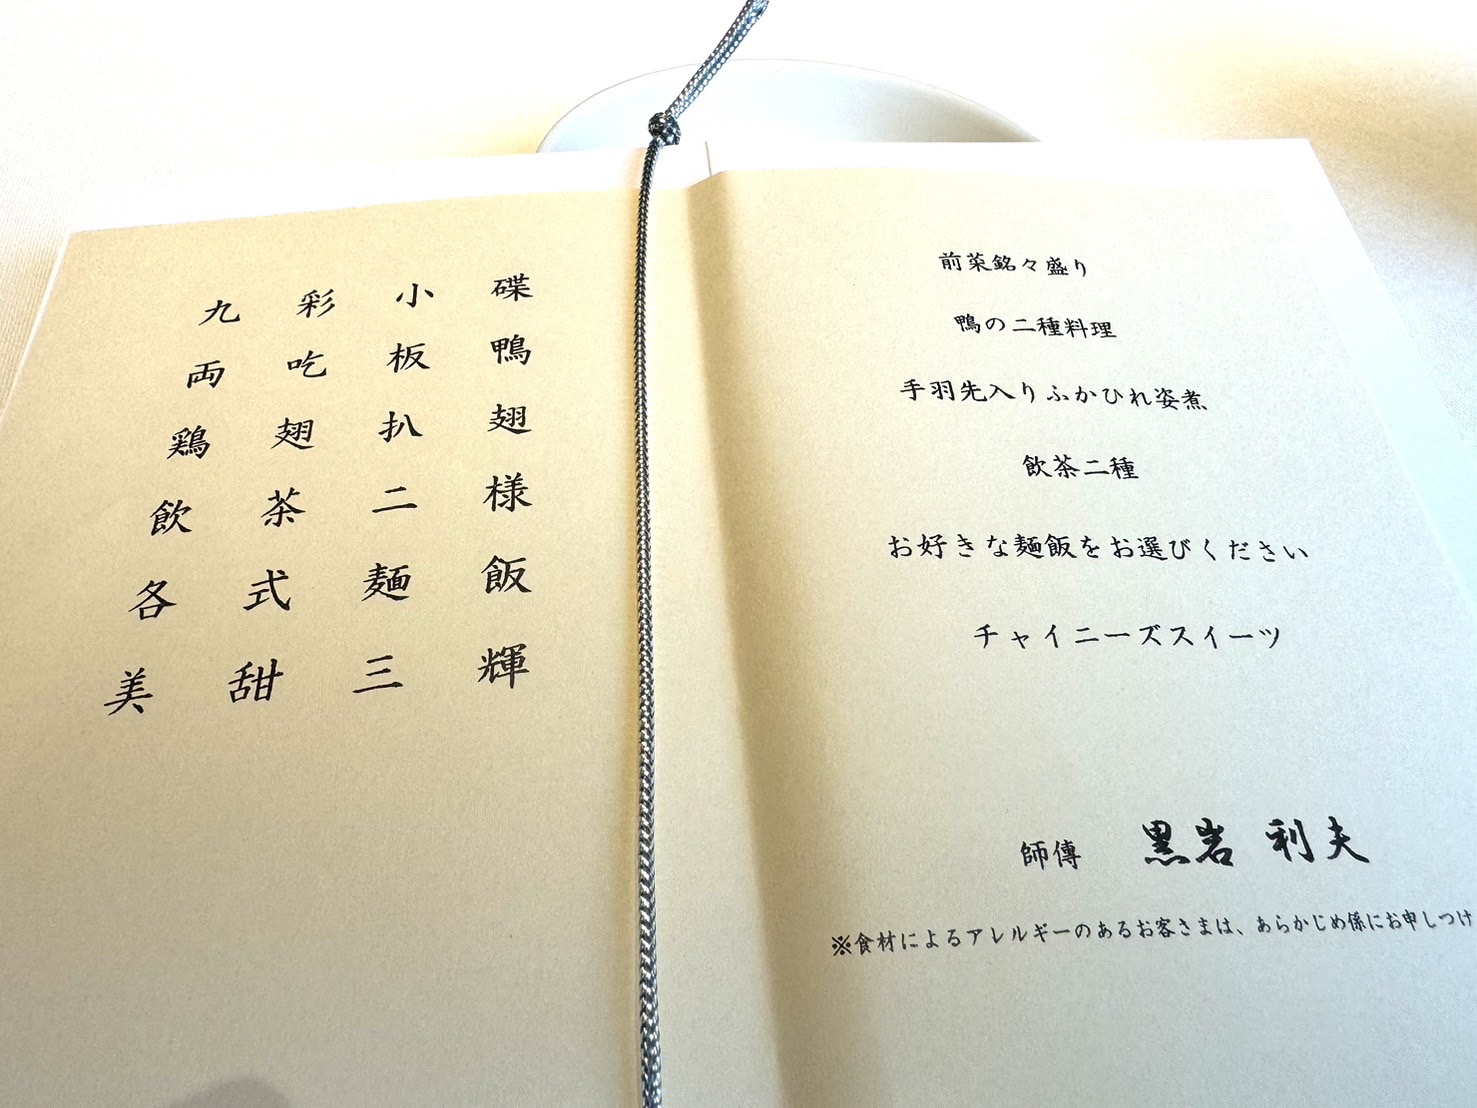 九彩小碟
両吃板鴨
鶏翅扒翅
飲茶二様
各式麺飯
美甜三輝
前菜銘々盛り
鴨の二種料理
手羽先入りふかひれ姿煮
飲茶二種
お好きな麺飯をお選びください
チャイニーズスイーツ
師傅 黒岩 利夫
※食材によるアレルギーのあるお客さまは、あらかじめ係にお申しつけ